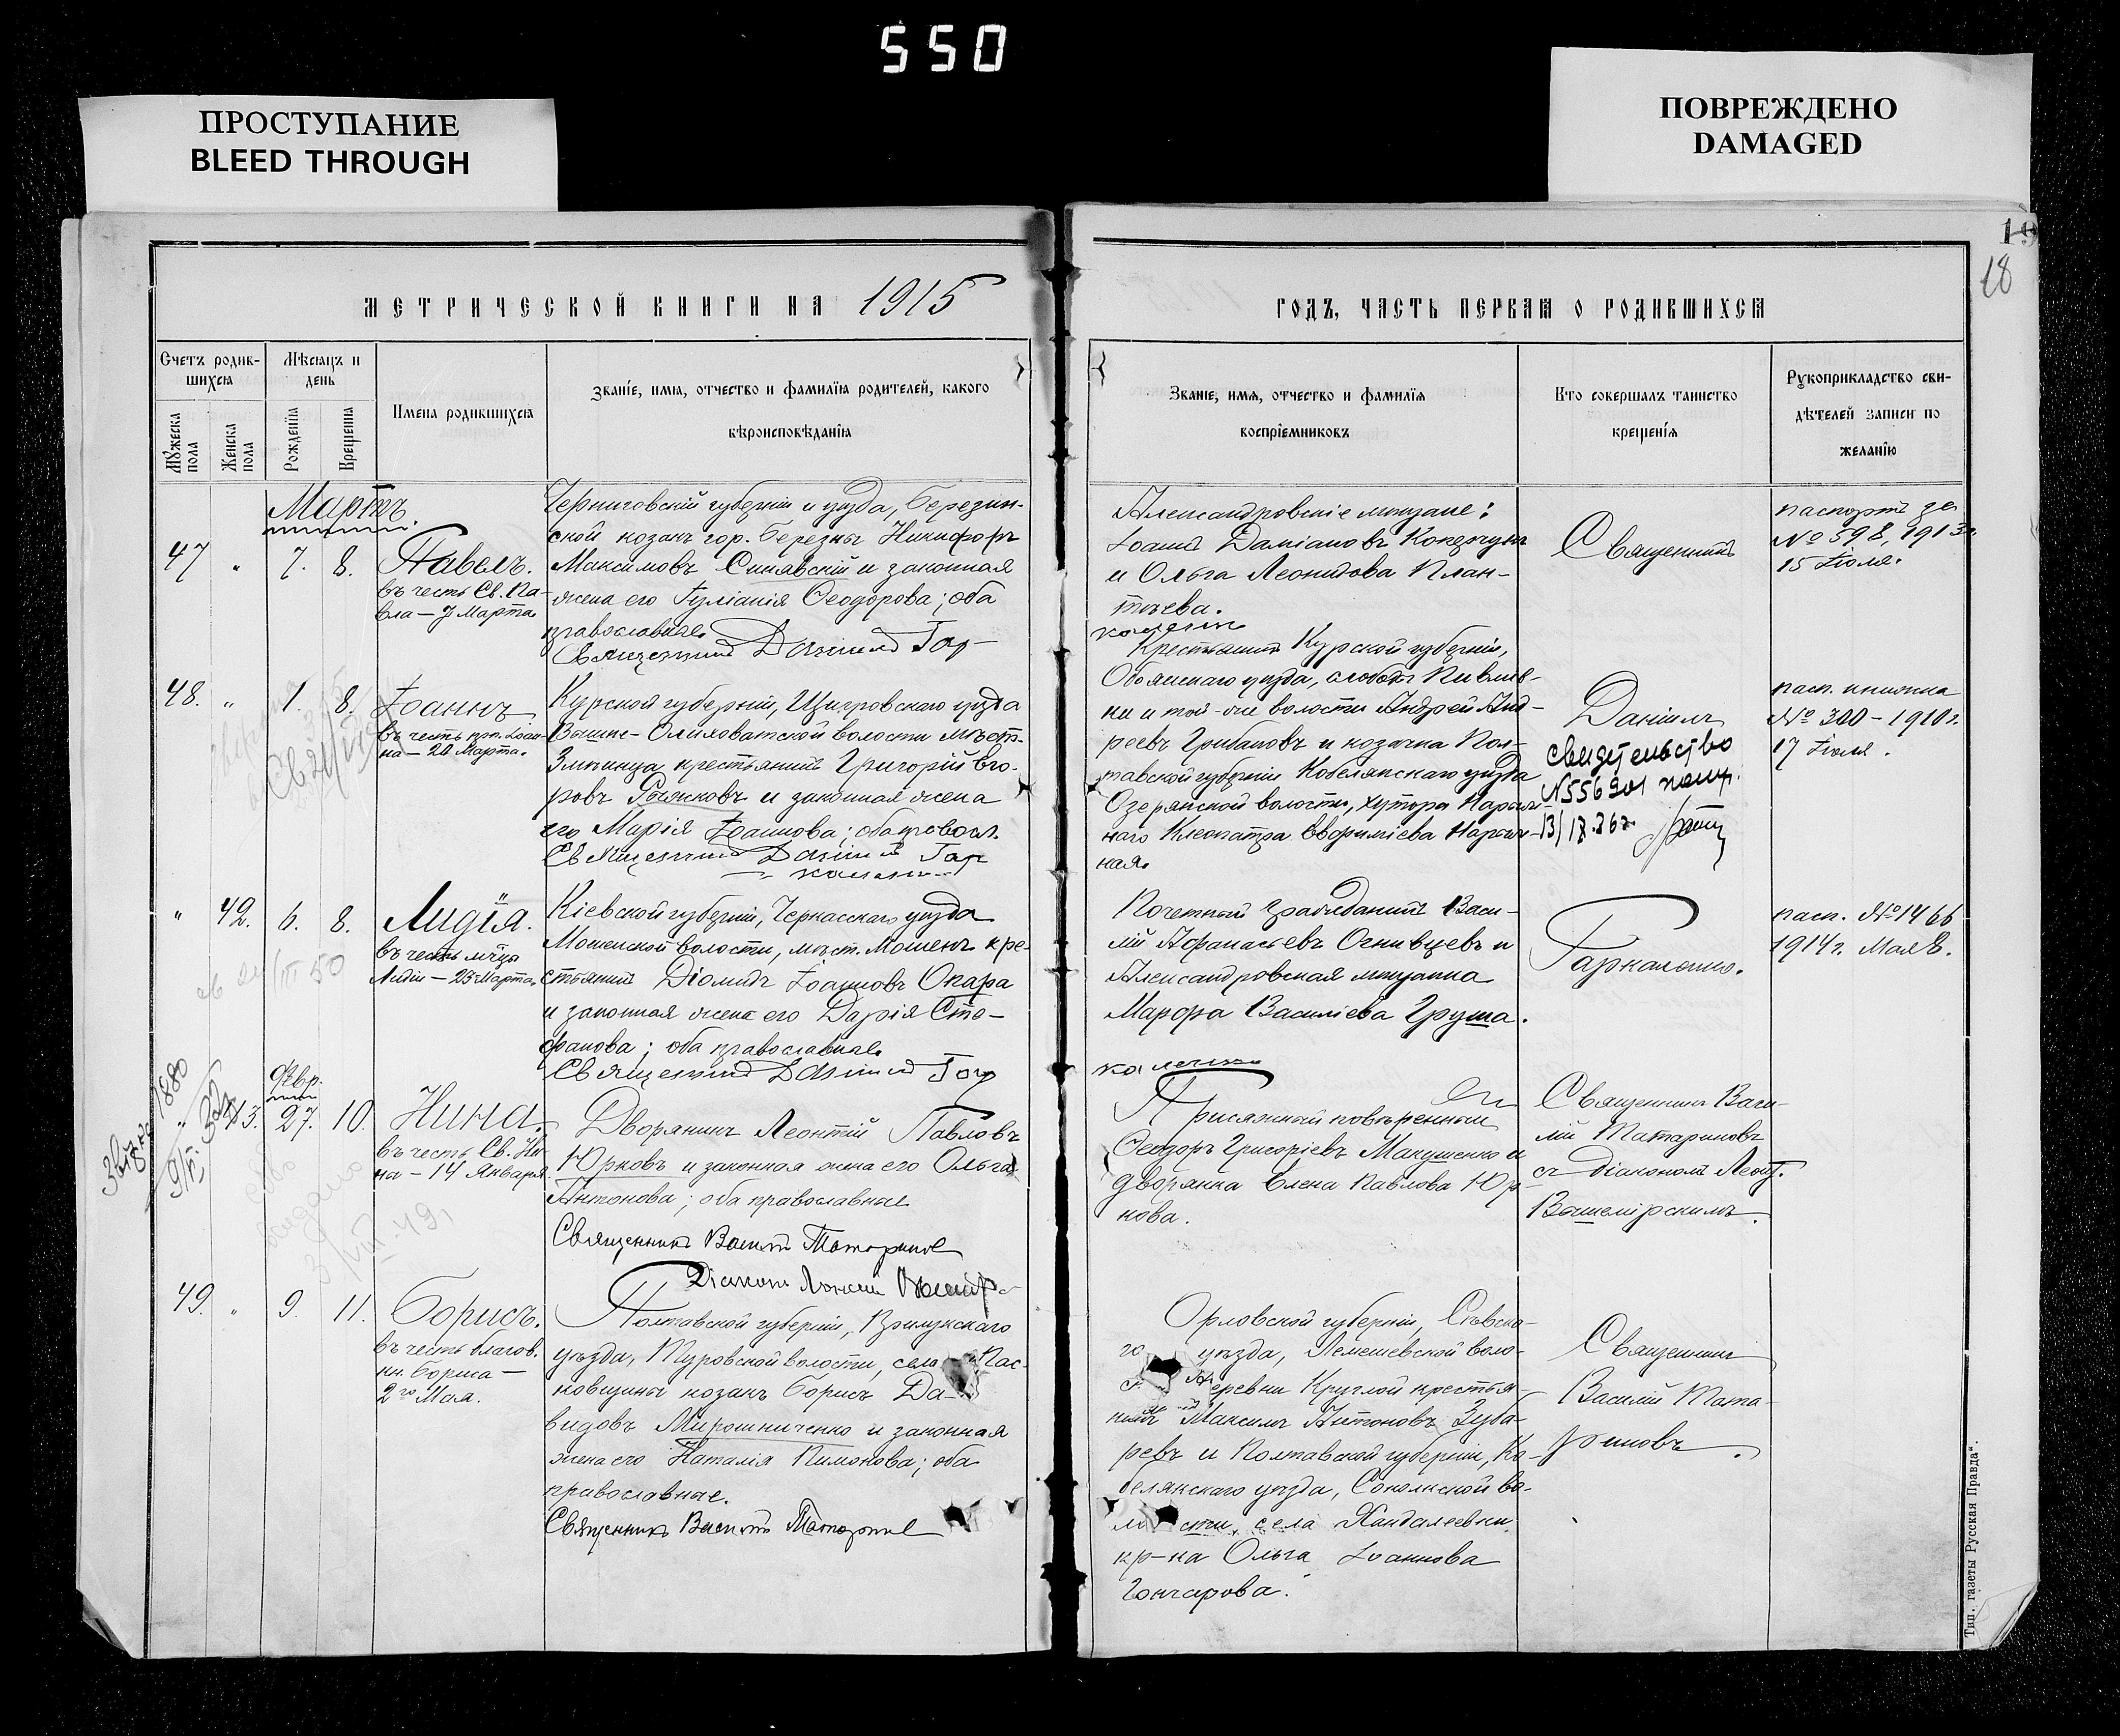 550
ПРОСТУПАНИЕ
BLEED THROUGH
ПОВРЕЖДЕНО
DAMAGED
18
МЕТРИЧЕСКОЙ КНИГИ НА 1915
ГОДЪ, ЧАСТЬ ПЕРВАЯ О РОДИВШИХСЯ
Счетъ родив-
шихся
Мѣсяцъ и
день
Мужеска
пола
Женска
пола
Рожденія
Крещенія
Имена родившихся
Званіе, имя, отчество и фамилія родителей, какого
вѣроисповѣданія
Званіе, имя, отчество и фамилія
воспріемниковъ
Кто совершалъ таинство
крещенія
Рукоприкладство сви-
дѣтелей записи по
желанію
Мартъ.
47 " 7. 8. Павелъ.
въ честь Св. Па-
вла — 7 Марта
Черниговской губерніи и уѣзда, Березин-
ской козакъ гор. Березны Никифоръ
Максимовъ Синявскій и законная
жена его Іуліанія Ѳеодорова; оба
православные
Священникъ Даніилъ Гар-
Александровскіе мѣщане:
Іоаннъ Даміановъ
и Ольга Леонидова План-
тьева.
каленко
Священникъ
паспортъ за
№ 598, 1913 г.
15 Іюля.
48. " 1. 8. Іоаннъ
въ честь прп. Іоан-
на — 20 Марта.
Курской губерніи, Щигровскаго уѣзда
Вышне-Ольховатской волости мѣст.
крестьянинъ Григорій Его-
ровъ Рыжковъ и законная жена
его Марія Іоаннова; оба правосл.
Священникъ Даніилъ Гар
каленко
Крестьянинъ Курской губерніи,
Обоянскаго уѣзда, слободы Пивлив-
ки и той-же волости Андрей Анд-
реевъ Грибановъ и козачка Пол-
тавской губерніи Кобелякскаго уѣзда
Озерянской волости, хутора
Клеопатра Евфиміева
ная.
Даніилъ
свидетельство
N 556901
пасп. книжка
№ 300 — 1910 г.
17 Іюля.
" 42. 6. 8. Лидія.
въ честь мч̃цы
Лидіи — 23 Марта
Кіевской губерніи, Черкасскаго уѣзда
Мошенской волости, мѣст. Мошенъ кре-
стьянинъ Діомидъ Іоанновъ Окара
и законная жена его Дарія Сте-
фанова; оба православные
Священникъ Даніилъ Гар
Почетный гражданинъ Васи-
лій Афанасьевъ Огнивцевъ и
Александровская мѣщанка
Марфа Василіева Груша.
каленко
Гаркаленко.
пасп. № 1466
1914 г. Мая 8.
Февр.
" 43. 27. 10. Нина.
въ честь Св. Ни-
на — 14 Января
Дворянинъ Леонтій Павловъ
Юрковъ и законная жена его Ольга
Антонова; оба православные
Священникъ Василій Татариновъ
Діаконъ
Присяжный повѣренный
Ѳеодоръ Григоріевъ Макушенко и
дворянка Елена Павлова Юр-
кова.
Священникъ Васи-
лій Татариновъ
съ діакономъ Леонт.
49. " 9. 11. Борисъ.
въ честь благов.
кн. Бориса —
2го Мая.
Полтавской губерніи, Прилукскаго
уѣзда, Туровской волости, села Пас-
ковщины козакъ Борисъ Да-
видовъ Мирошниченко и законная
жена его Наталія Пимонова; оба
православные.
Священникъ Василій Татариновъ
Орловской губерніи, Сѣвска-
го уѣзда, Лемешевской воло-
деревни Круглой крестья-
нинъ Максимъ Антоновъ Зуба-
ревъ и Полтавской губерніи, Ко-
белякскаго уѣзда, Сокольской во-
лости, села Хандалеевки
кр-на Ольга Іоаннова
Гончарова.
Священникъ
Василій Тата-
риновъ.
Тип. газеты „Русская Правда“.